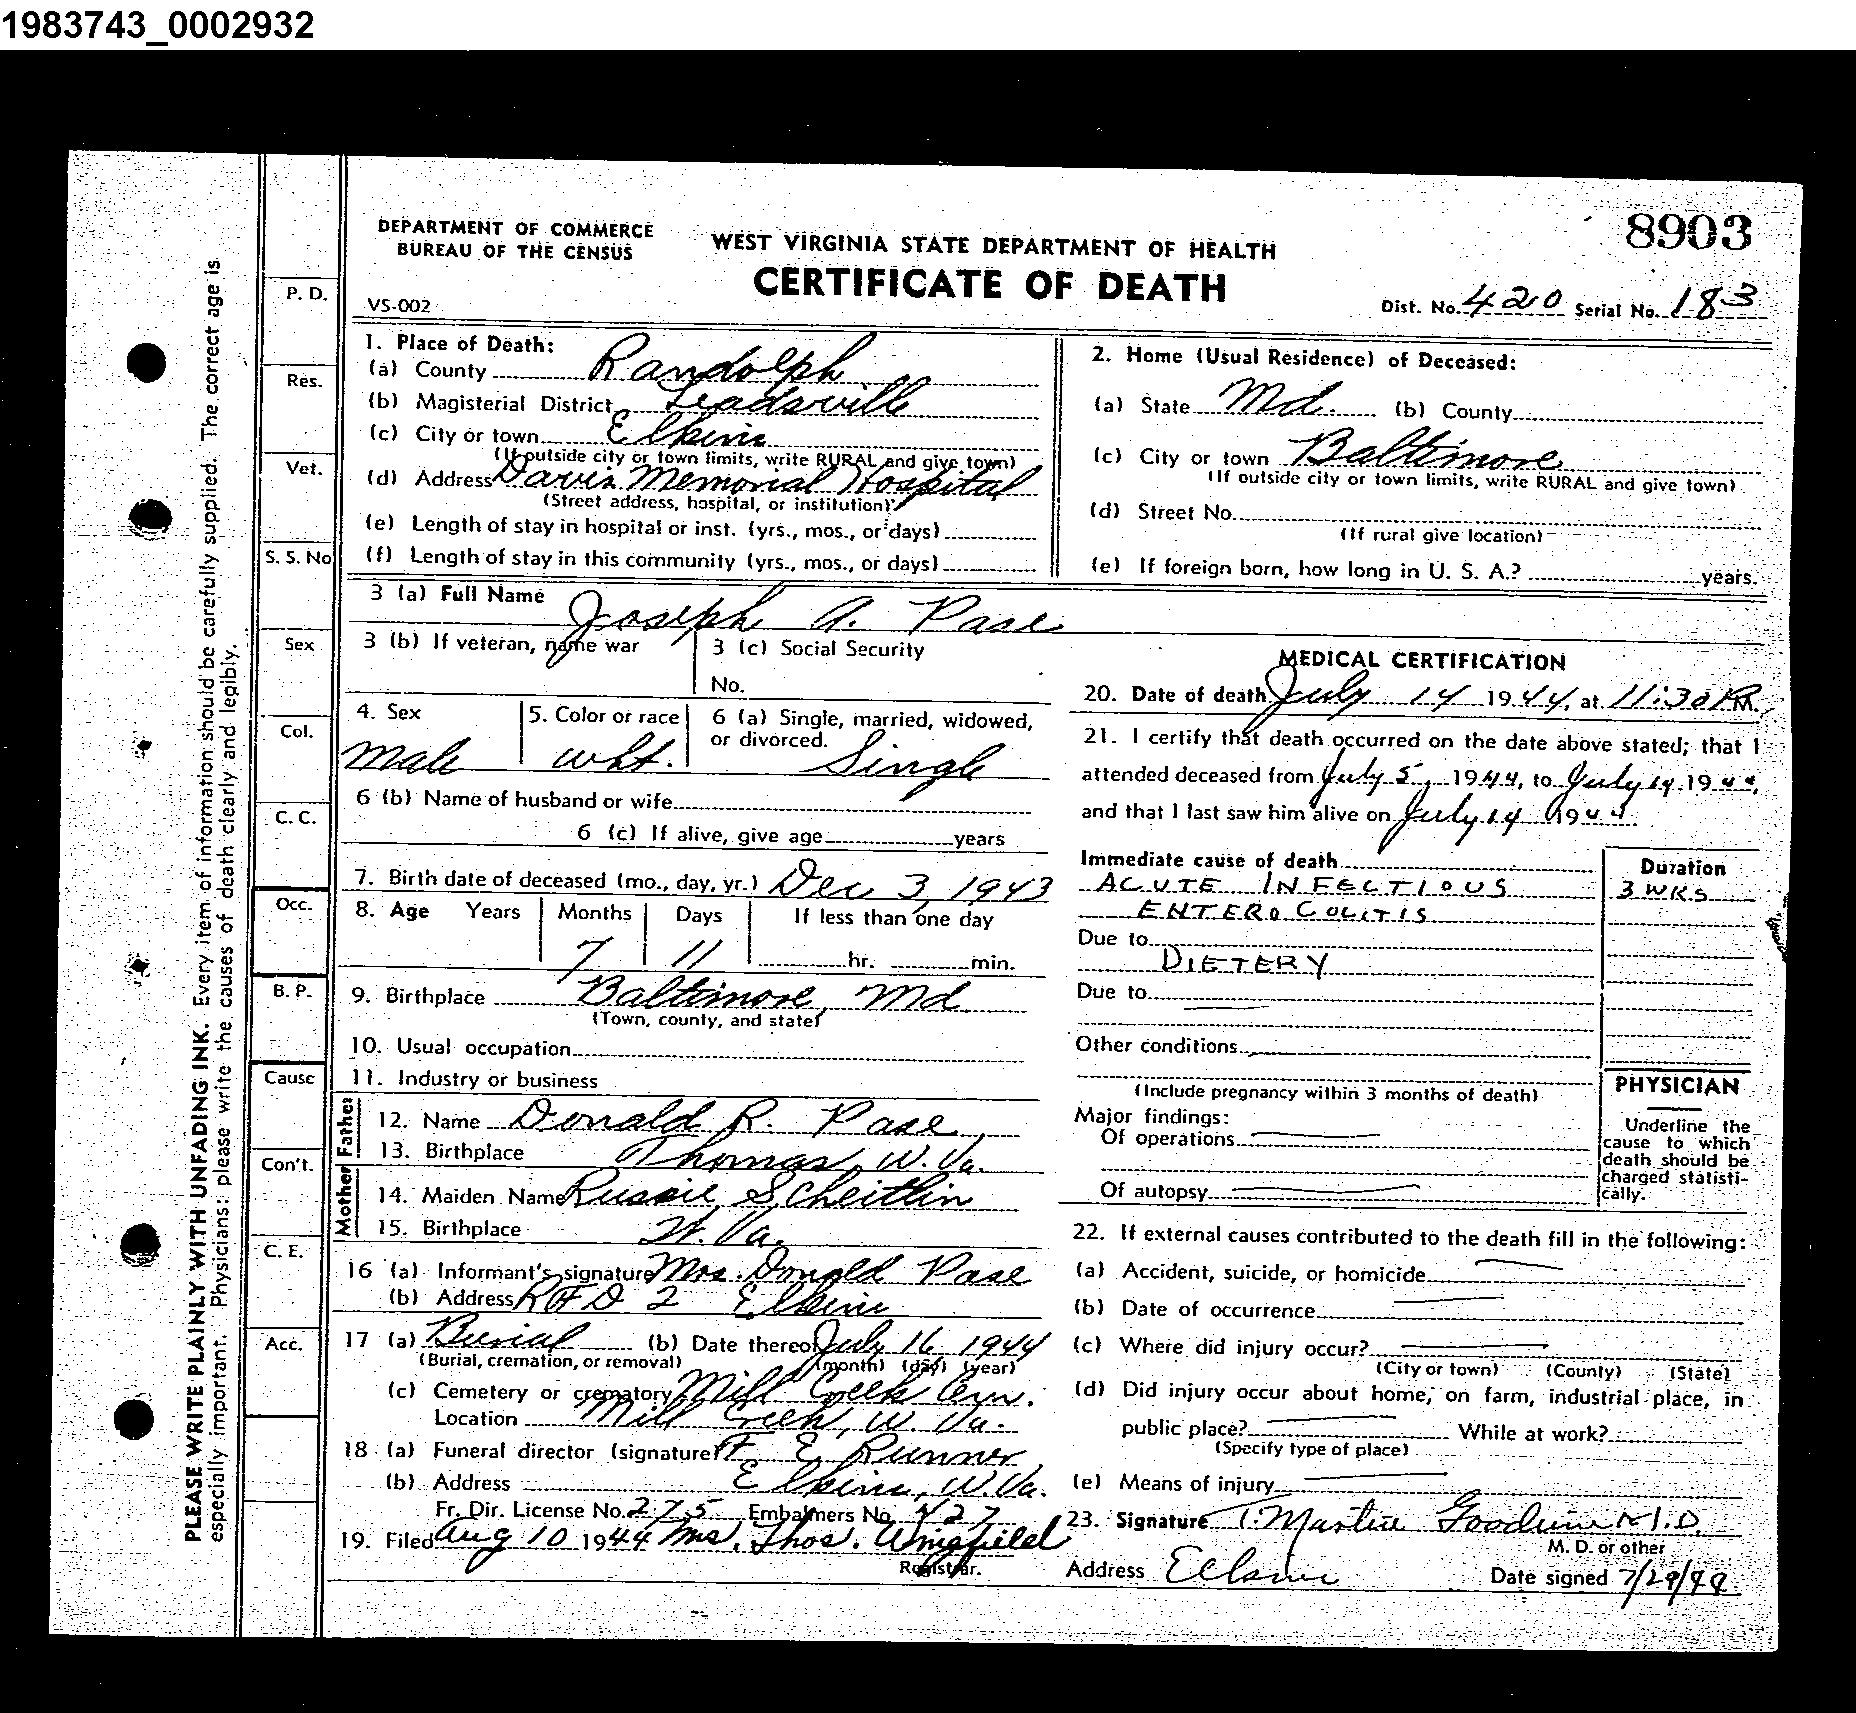 1983743_0002932
8903
DEPARTMENT OF COMMERCE
BUREAU OF THE CENSUS
WEST VIRGINIA STATE DEPARTMENT OF HEALTH
CERTIFICATE OF DEATH
VS-002
Dist. No. 420 Serial No. 183
PLEASE WRITE PLAINLY WITH UNFADING INK. Every item of information should be carefully supplied. The correct age is
especially important. Physicians: please write the causes of death clearly and legibly.
P. D.
Res.
Vet.
S. S. No
Sex
Col.
C. C.
Occ.
B. P.
Cause
Con't.
C. E.
Acc.
1. Place of Death:
(a) County Randolph
(b) Magisterial District Leadsville
(c) City or town Elkins
(If outside city or town limits, write RURAL and give town)
(d) Address Davis Memorial Hospital
(Street address, hospital, or institution)
(e) Length of stay in hospital or inst. (yrs., mos., or days)
(f) Length of stay in this community (yrs., mos., or days)
2. Home (Usual Residence) of Deceased:
(a) State Md. (b) County
(c) City or town Baltimore
(If outside city or town limits, write RURAL and give town)
(d) Street No.
(If rural give location)
(e) If foreign born, how long in U. S. A.? years.
3 (a) Full Name Joseph A. Pase
3 (b) If veteran, name war
3 (c) Social Security
No.
4. Sex
Male
5. Color or race
Wht.
6 (a) Single, married, widowed,
or divorced. Single
6 (b) Name of husband or wife
6 (c) If alive, give age years
7. Birth date of deceased (mo., day, yr.) Dec 3, 1943
8. Age Years Months Days If less than one day
7 11 hr. min.
9. Birthplace Baltimore, Md
(Town, county, and state)
10. Usual occupation
11. Industry or business
Father
12. Name Donald R. Pase
13. Birthplace Thomas, W. Va.
Mother
14. Maiden Name Russie Scheitlin
15. Birthplace W. Va.
16 (a) Informant's signature Mrs. Donald Pase
(b) Address RFD 2 Elkins
17 (a) Burial (b) Date thereof July 16 1944
(Burial, cremation, or removal) (month) (day) (year)
(c) Cemetery or crematory Mill Creek Cem.
Location Mill Creek, W. Va.
18 (a) Funeral director (signature) E Runner
(b) Address Elkins, W. Va.
Fr. Dir. License No. 275 Embalmers No. 427
19. Filed Aug 10 1944 Mrs. Thos. Wingfield
Registrar.
MEDICAL CERTIFICATION
20. Date of death July 14 1944, at 11:30 P.M.
21. I certify that death occurred on the date above stated; that I
attended deceased from July 5, 1944, to July 14 1944,
and that I last saw him alive on July 14 1944
Immediate cause of death
ACUTE INFECTIOUS
ENTEROCOLITIS
Due to
DIETERY
Due to
Other conditions
(Include pregnancy within 3 months of death)
Major findings:
Of operations
Of autopsy
Duration
3 WKS
PHYSICIAN
Underline the
cause to which
death should be
charged statisti-
cally.
22. If external causes contributed to the death fill in the following:
(a) Accident, suicide, or homicide
(b) Date of occurrence
(c) Where did injury occur?
(City or town) (County) (State)
(d) Did injury occur about home, on farm, industrial place, in
public place? While at work?
(Specify type of place)
(e) Means of injury
23. Signature T. Martin Goodwin M.D.
M. D. or other
Address Elkins
Date signed 7/29/44